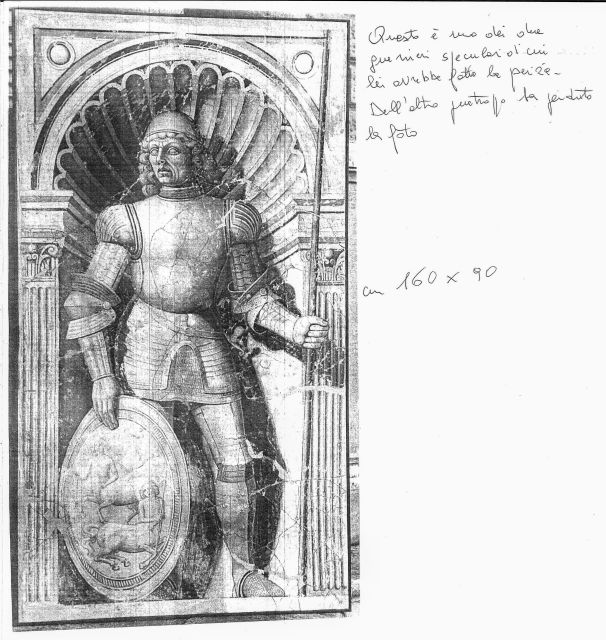 Questo è uno dei due
guerrieri speculari di cui
lei avrebbe fatto la perizia.
Dell'altro purtroppo ha perduto
la foto
cm 160 x 90